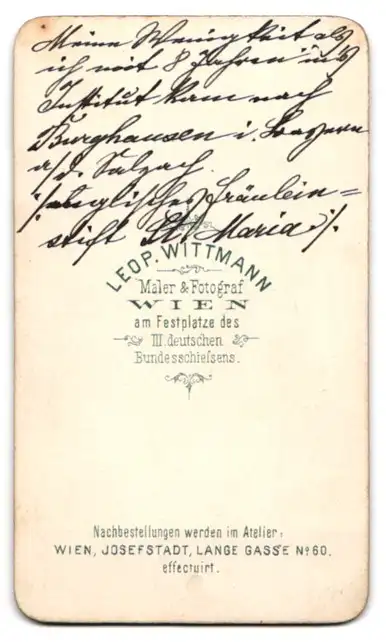 Meine Wenigkeit als
ich mit 8 Jahren in's
Institut kam nach
Burghausen i. Bayern
a/d. Salzach
·/. englisches Fräulein=
stift St. Maria ·/.
LEOP. WITTMANN
Maler & Fotograf
WIEN
am Festplatze des
III. deutschen
Bundesschiefsens.
Nachbestellungen werden im Atelier:
WIEN, JOSEFSTADT, LANGE GASSE No 60.
effectuirt.